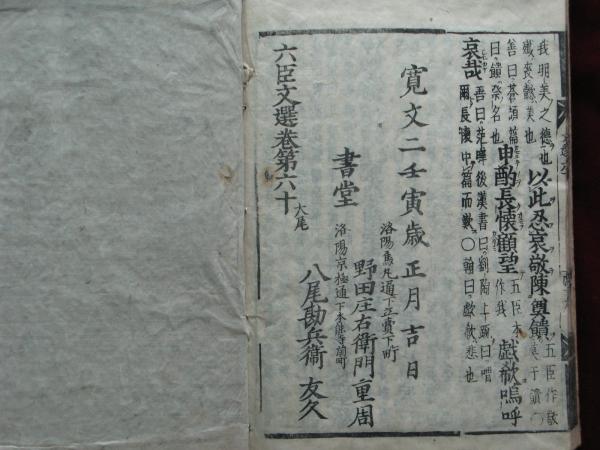 我明美之德也以此忍哀敬陳奠饋五臣作敬
善曰蒼頡篇
曰饋祭名也申酌長懷顧望五臣本作我歔欷嗚呼
哀哉善曰范曄後漢書曰劉陶上疏曰喟爾長懷中篇而歎○翰曰歔欷悲也
六臣文選卷第六十大尾
寛文二壬寅歳正月吉日
洛陽烏丸通下立賣下町
書堂 野田庄右衛門重周
洛陽京極通下本能寺前町
八尾勘兵衞友久